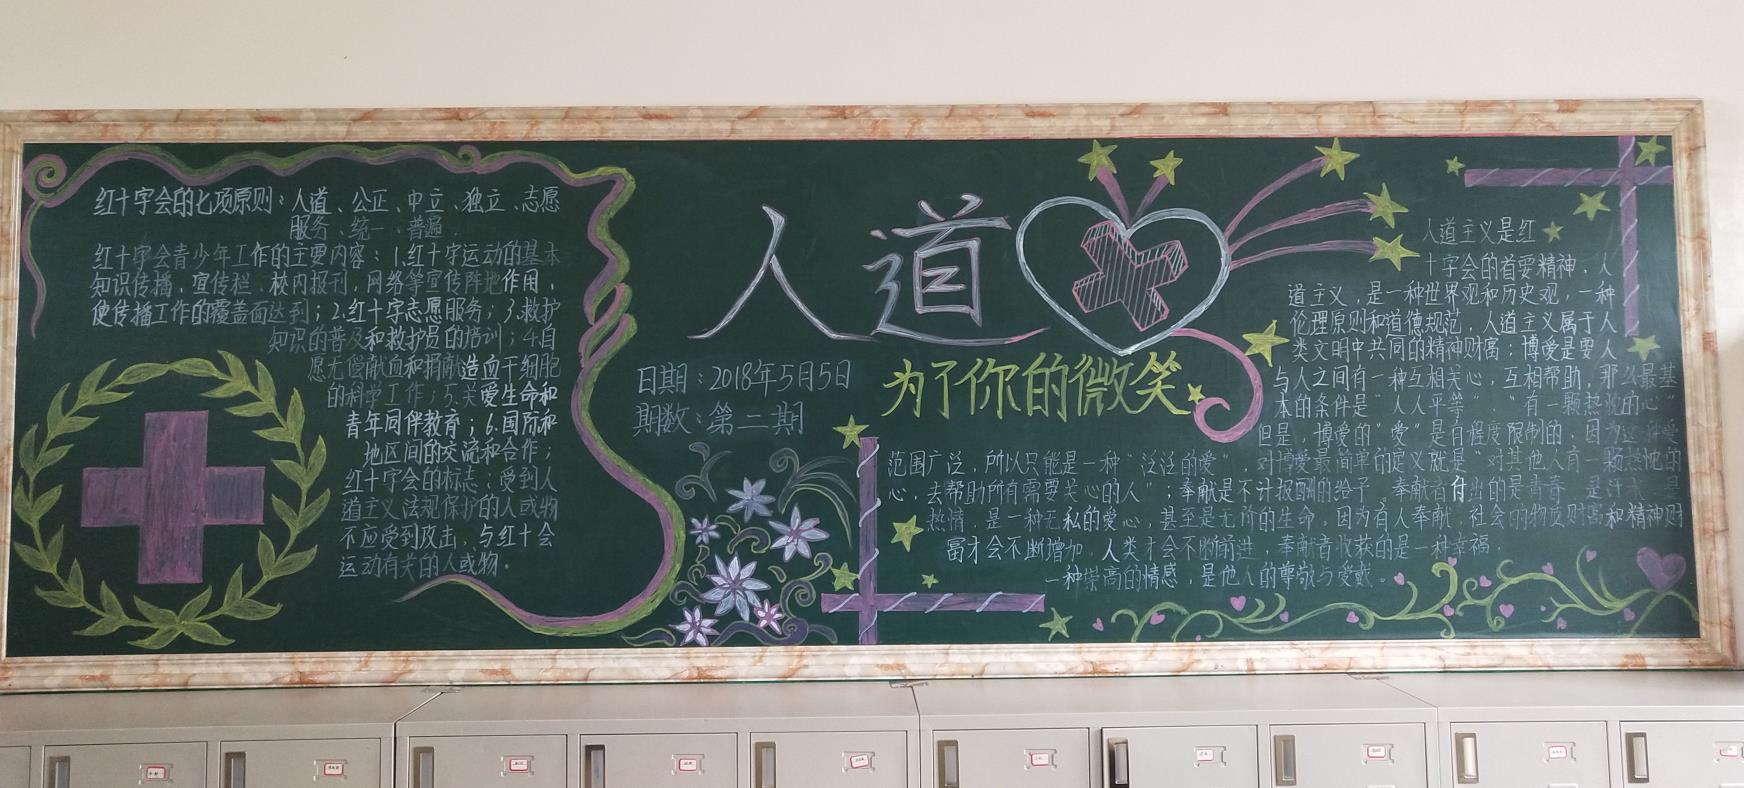 红十字会的七项原则：人道、公正、中立、独立、志愿
服务、统一、普遍.
红十字会青少年工作的主要内容：1.红十字运动的基本
知识传播，宣传栏、校内报刊，网络等宣传阵地作用，
使传播工作的覆盖面达到；2.红十字志愿服务；3.救护
知识的普及和救护员的培训；4.自
愿无偿献血和捐献造血干细胞
的科学工作；5.关爱生命和
青年同伴教育；6.国际和
地区间的交流和合作；
红十字会的标志：受到人
道主义法规保护的人或物
不应受到攻击，与红十会
运动有关的人或物。
人道
为了你的微笑
日期：2018年5月5日
期数：第二期
人道主义是红
十字会的首要精神，人
道主义，是一种世界观和历史观，一种
伦理原则和道德规范，人道主义属于人
类文明中共同的精神财富；博爱是要人
与人之间有一种互相关心，互相帮助，那么最基
本的条件是“人人平等”，“有一颗热忱的心”
但是，博爱的“爱”是有程度限制的，因为这种爱
范围广泛，所以只能是一种“泛泛的爱”，对博爱最简单的定义就是“对其他人有一颗热忱的
心，去帮助所有需要关心的人”；奉献是不计报酬的给予，奉献者付出的是青春，是汗水，是
热情，是一种无私的爱心，甚至是无价的生命，因为有人奉献，社会的物质财富和精神财
富才会不断增加，人类才会不断前进，奉献者收获的是一种幸福，
一种崇高的情感，是他人的尊敬与爱戴。